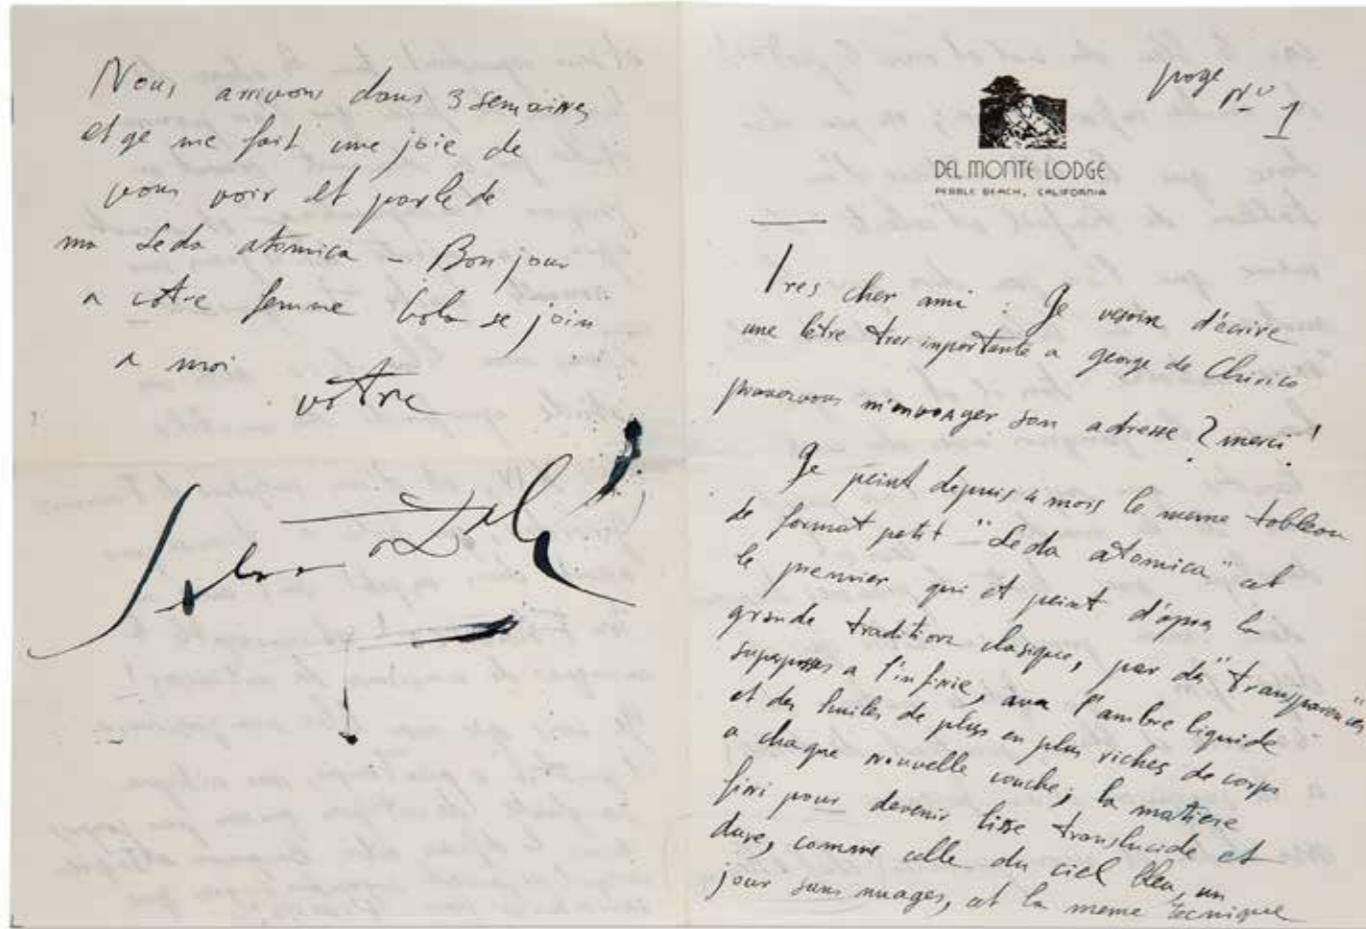 Nous arrivons dans 3 semaines
et ge me fait une joie de
vous voir et parle de
ma Leda atomica – Bonjour
a votre femme Gala se join
a moi
votre
Salvador Dalí
page Nº 1
DEL MONTE LODGE
PEBBLE BEACH, CALIFORNIA
Tres cher ami : Je d'ecrire
une letre tres inportante a george de Chirico
m'envoager son adresse ? merci !
Je peint depuis 4 mois le meme tableau
de format petit "Leda atomica" et
le premier qui et peint d'apres la
grande tradition clasique, par des "transparences"
a l'infinie, avec l'ambre liquide
et des huiles de plus en plus riches de corps
a chaque nouvelle couche; la matiere
fini pour devenir lisse translucide et
dure, comme celle du ciel bleu, un
jour sans nuages, et la meme tecnique